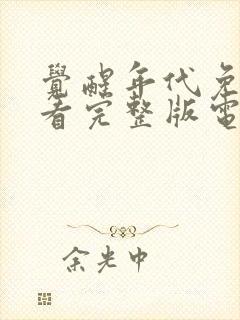 覺醒年代免
看完整版電
余光中